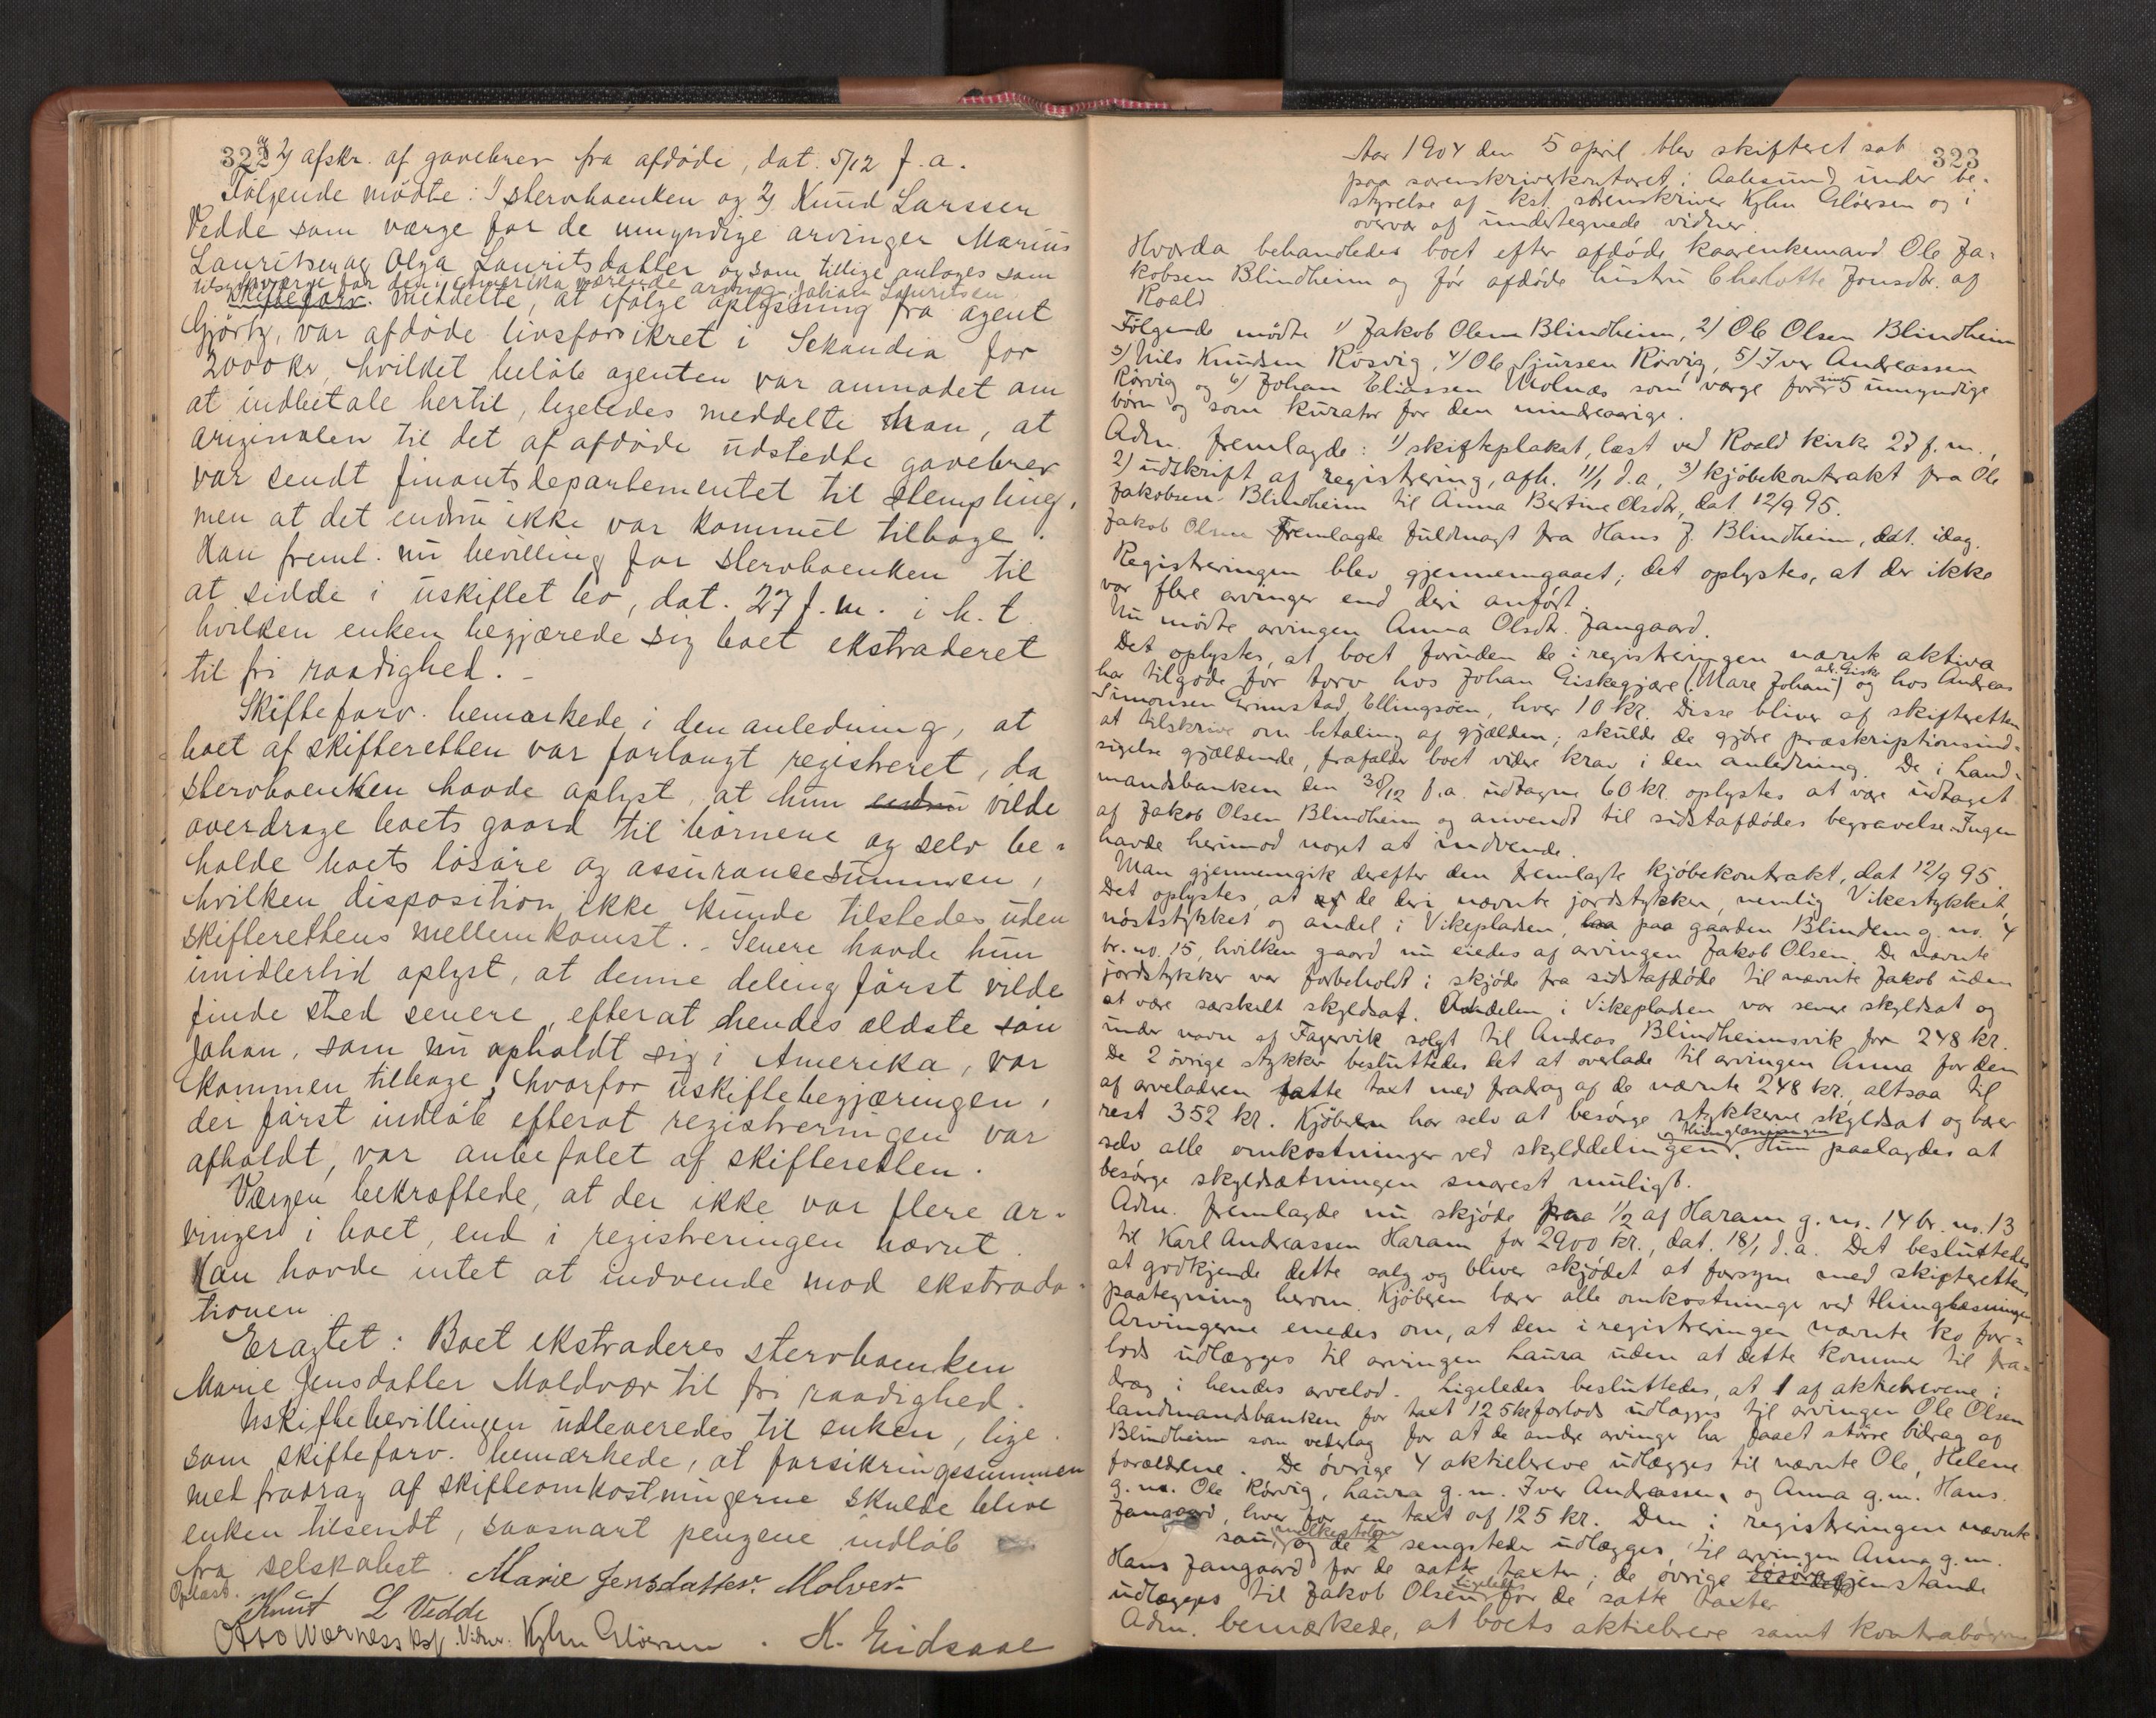 322
og 2) afskr. af gavebrev fra afdøde, dat. 5/12 f. a.
Følgende mødte: 1) stervboenken og 2) Knud Larssen
Vedde som værge for de umyndige arvinger Marius
Lauritsen og Olga Lauritsdatter og som tillige antoges som
tilsynsværge for den i Amerika værende arving Johan Lauritsen.
Skifteforv. meddelte, at ifølge oplysning fra agent
Gjörtz, var afdøde livsforsikret i Skandia for
2000 kr, hvilket beløb agenten var anmodet om
at indbetale hertil, ligeledes meddelte han, at
originalen til det af afdøde udstedte gavebrev
var sendt finantsdepartementet til stempling,
men at det endnu ikke var kommet tilbage.
Han freml. nu bevilling for stervboenken til
at sidde i uskiftet bo, dat. 27 f. m. i h. t.
hvilken enken begjærede sig boet ekstraderet
til fri raadighed. -
Skifteforv. bemærkede i den anledning, at
boet af skifteretten var forlangt registreret, da
stervboenken havde oplyst, at hun endnu vilde
overdrage boets gaard til børnene og selv be-
holde boets løsøre og assurancesummen,
hvilken disposition ikke kunde tilstedes uden
skifterettens mellemkomst. - Senere havde hun
imidlertid oplyst, at denne deling først vilde
finde sted senere, efterat hendes ældste søn
Johan, som nu opholdt sig i Amerika, var
kommen tilbage, hvorfor uskiftebegjæringen,
der først indløb efterat registreringen var
afholdt, var anbefalet af skifteretten.
Værgen bekræftede, at der ikke var flere ar-
vinger i boet, end i registreringen nævnt.
Han havde intet at indvende mod ekstrada-
tionen.
Eragtet: Boet ekstraderes stervboenken
Marie Jensdatter Moldvær til fri raadighed.
Uskiftebevillingen udleveredes til enken, lige-
som skifteforv. bemærkede, at forsikringssummen
med fradrag af skifteomkostningerne skulde blive
enken tilsendt, saasnart pengene indløb
fra selskabet. Marie Jensdatter Molver
Oplæst.
Knut L Vedde
Otto Wærness Vidne. Kylm Gløersen. K. Eidsaae
323
Aar 1904 den 5 april blev skifteret sat
paa sorenskriverkontoret i Aalesund under be-
styrelse af kst. sorenskriver Kylm Gløersen og i
overvær af undertegnede vidner.
Hvorda behandledes boet efter afdøde kaarenkemand Ole Ja-
kobsen Blindheim og før afdøde hustru Charlotte Jonsdtr. af
Roald
Følgende mødte 1) Jakob Olsen Blindheim, 2) Ole Olsen Blindheim
3) Nils Knudsen Røsvig, 4) Ole Sjursen Rørvig, 5) Iver Andreassen
Rørvig og 6) Johan Eliassen Molnæs som værge for sine 5 umyndige
børn og som kurator for den mindreaarige.
Adm. fremlagde: 1) skifteplakat, læst ved Roald kirke 27 f. m.,
2) udskrift af registrering, afh. 11/1 d. a., 3) kjøbekontrakt fra Ole
Jakobsen Blindheim til Anna Bertine Olsdtr, dat. 12/9 95.
Jakob Olsen fremlagde fuldmagt fra Hans J. Blindheim, dat. idag.
Registreringen blev gjennemgaaet; det oplystes, at der ikke
var flere arvinger end deri anført.
Nu mødte arvingen Anna Olsdtr. Jangaard.
Det oplystes, at boet foruden de i registreringen nævnte aktiva
har tilgode for torv hos Johan Giskegjære (Mare Johan) adr. Giske og hos Andreas
Simonsen Grimstad, Ellingsøen, hver 10 kr. Disse bliver af skifteretten
at tilskrive om betaling af gjælden; skulde de gjøre præskriptionsind-
sigelse gjældende, frafalder boet videre krav i den anledning. De i Land-
mandsbanken den 30/12 f. a. udtagne 60 kr. oplystes at være udtaget
af Jakob Olsen Blindheim og anvendt til sidstafdødes begravelse. Ingen
havde herimod noget at indvende.
Man gjennemgik derefter den fremlagte kjøbekontrakt, dat 12/9 95.
Det oplystes, at af de deri nævnte jordstykker, nemlig Vikestykket,
nøststykket og andel i Vikepladsen, laa paa gaarden Blindem g. no. 4
br. no. 15, hvilken gaard nu eiedes af arvingen Jakob Olsen. De nævnte
jordstykker var forbeholdt i skjøde fra sidstafdøde til nævnte Jakob uden
at være særskilt skyldsat. Andelen i Vikepladsen var senere skyldsat og
under navn af Fagervik solgt til Andreas Blindheimsvik for 248 kr.
De 2 øvrige stykker besluttedes det at overlade til arvingen Anna for den
af arveladeren satte taxt med fradrag af de nævnte 248 kr., altsaa til
rest 352 kr. Kjøberen har selv at besørge stykkerne skyldsat og bærer
selv alle omkostninger ved skylddelingen og thinglæsningen. Hun paalagdes at
besørge skyldsætningen snarest muligt.
Adm. fremlagde nu skjøde paa 1/2 af Haram g. no. 14 br. no. 13
til Karl Andreassen Haram for 2900 kr., dat. 18/1 d. a. Det besluttedes
at godkjende dette salg og bliver skjødet at forsyne med skifterettens
paategning herom. Kjøberen bærer alle omkostninger ved thinglæsningen
Arvingerne enedes om, at den i registreringen nævnte ko for-
lods udlægges til arvingen Laura uden at dette kommer til fra-
drag i hendes arvelod. Ligeledes besluttedes, at 1 af aktiebrevene i
landmandsbanken for taxt 125 kr forlods udlægges til arvingen Ole Olsen
Blindheim som vederlag for at de andre arvinger har faaet større bidrag af
forældrene. De øvrige 4 aktiebreve udlægges til nævnte Ole, Helene
g. m. Ole Rørvig, Laura g. m. Iver Andreassen, og Anna g. m. Hans
Jangaard, hver for en taxt af 125 kr. Den i registreringen nævnte
sau, og de 2 sengsteder udlægges til arvingen Anna g. m.
Hans Jangaard for de satte taxter; de øvrige gjenstande
udlægges til Jakob Olsen ligeledes for de satte taxter
Adm. bemærkede, at boets aktiebreve samt kontrabøgerne